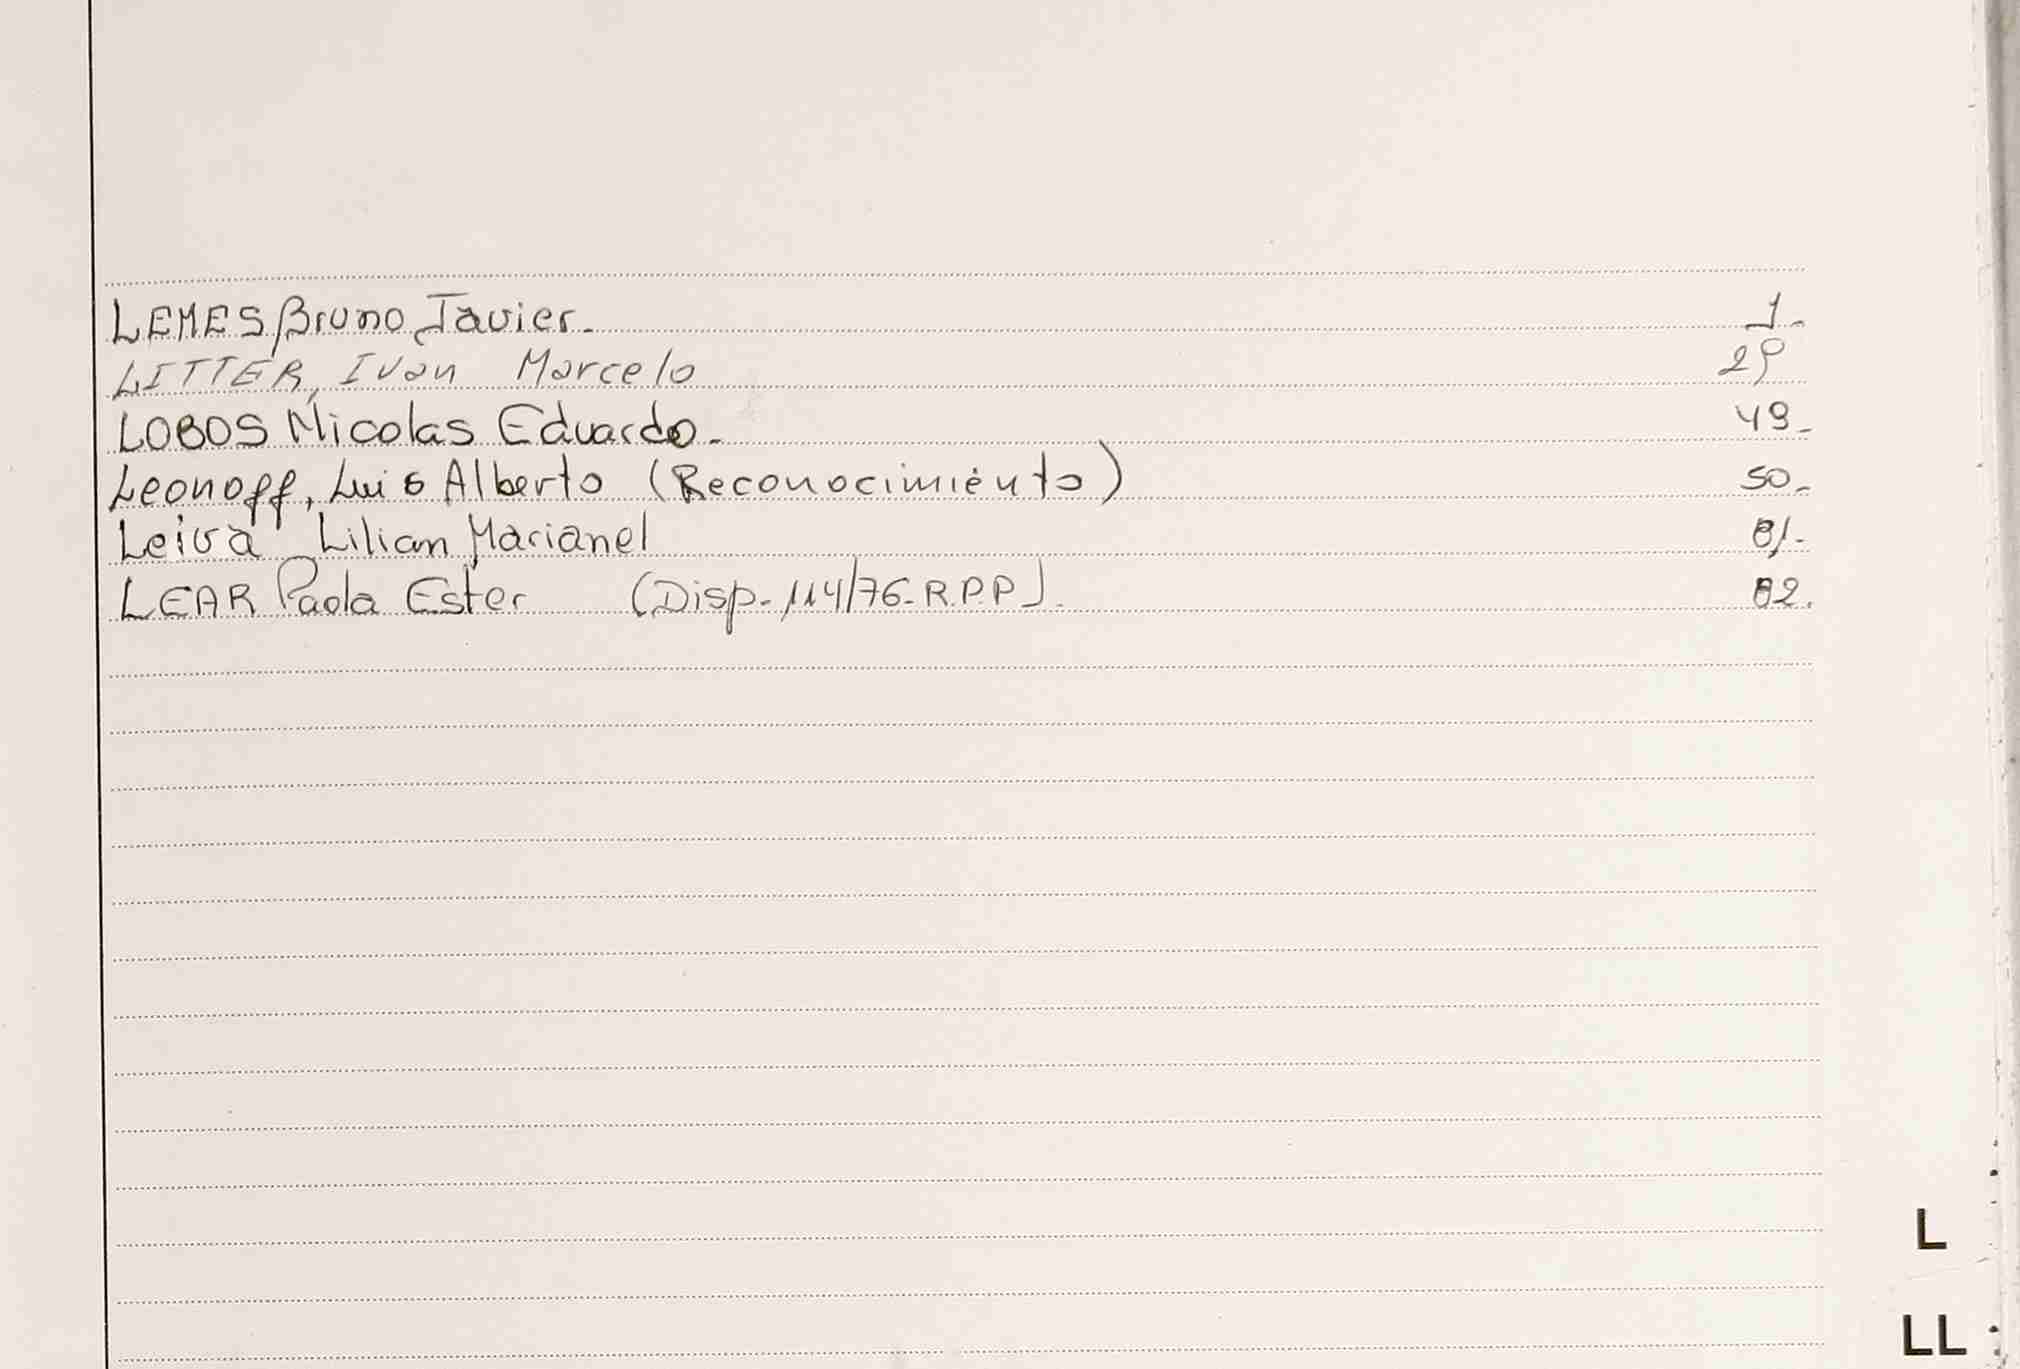 LEMES Bruno Javier. 1-
LITTER, Ivan Marcelo 29
LOBOS Nicolas Eduardo. 49-
Leonoff, Luis Alberto (Reconocimiento) 50-
Leiva Lilian Marianel 81-
LEAR Paola Ester (Disp. 114/76-R.P.P). 82.
L
LL